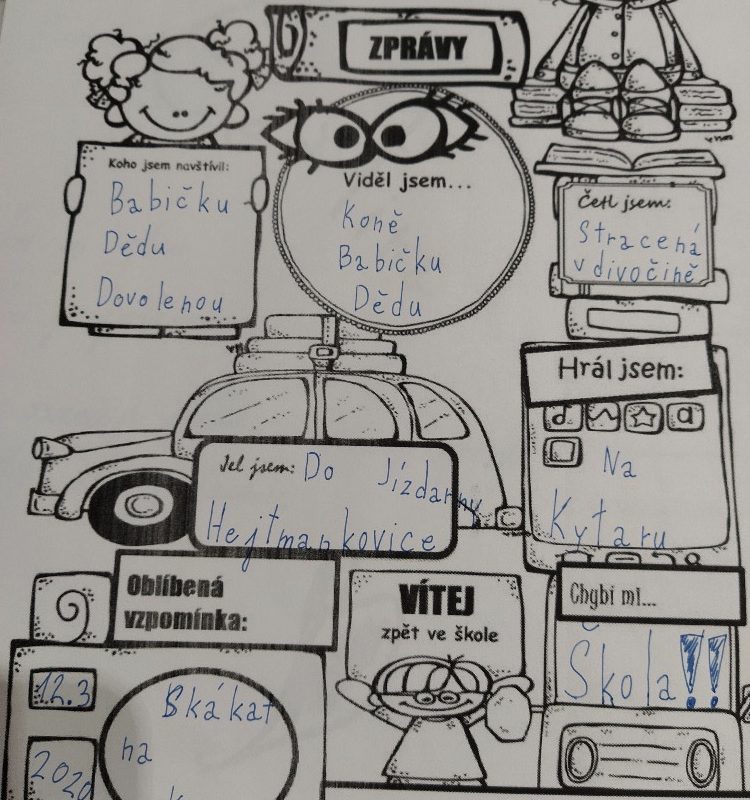 ZPRÁVY
Koho jsem navštívil:
Babičku
Dědu
Dovolenou
Viděl jsem...
Koně
Babičku
Dědu
Četl jsem:
Stracená
v divočině
Hrál jsem:
Na
Kytaru
Jel jsem: Do Jízdárny
Hejtmankovice
Oblíbená
vzpomínka:
12.3
2020
Skákat
na
VÍTEJ
zpět ve škole
Chybí mi...
Škola!!